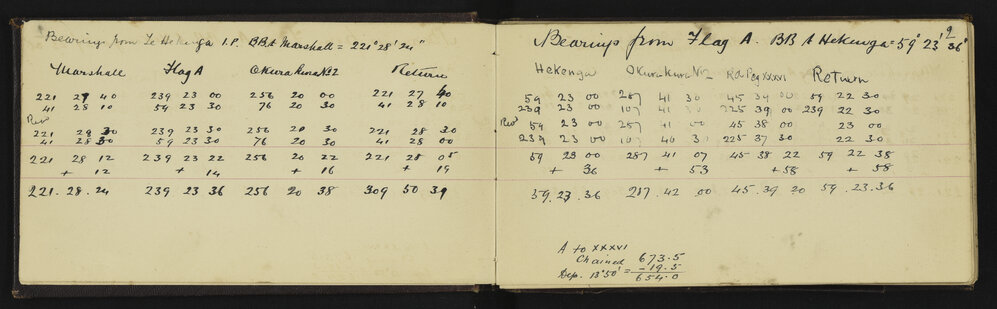 Bearings from Te Hekenga I.P. BB to Marshall = 221° 28' 24"
Marshall Flag A Okurakura No2 Return
221 27 40 239 23 00 256 20 00 221 27 40
41 28 10 59 23 30 76 20 30 41 28 10
Rev
221 28 30 239 23 30 256 20 30 221 28 30
41 28 30 59 23 30 76 20 30 41 28 00
221 28 12 239 23 22 256 20 22 221 28 05
+ 12 + 14 + 16 + 19
221. 28. 24 239 23 36 256 20 38 309 50 39
Bearings from Flag A. BB to Hekenga = 59° 23' 36"
Hekenga Okurakura No2 Rd Peg XXXVI Return
59 23 00 287 41 30 45 39 00 59 22 30
239 23 00 107 41 225 39 00 239 22 30
Rev 59 23 00 287 41 00 45 38 00 23 00
239 23 00 107 40 30 225 37 30 22 30
59 23 00 287 41 07 45 38 22 59 22 38
+ 36 + 53 +58 + 58
59. 23. 36 287. 42 00 45. 39 20 59. 23. 36
A to XXXVI
Chained 673.5
Dep. 13°50' = -19.5
654.0